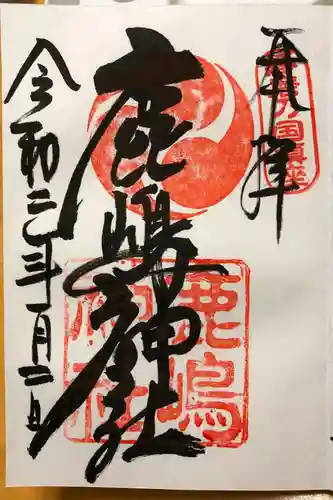 奉拝
国鎮座
鹿嶋神社
鹿嶋
神社
令和二年一月二日